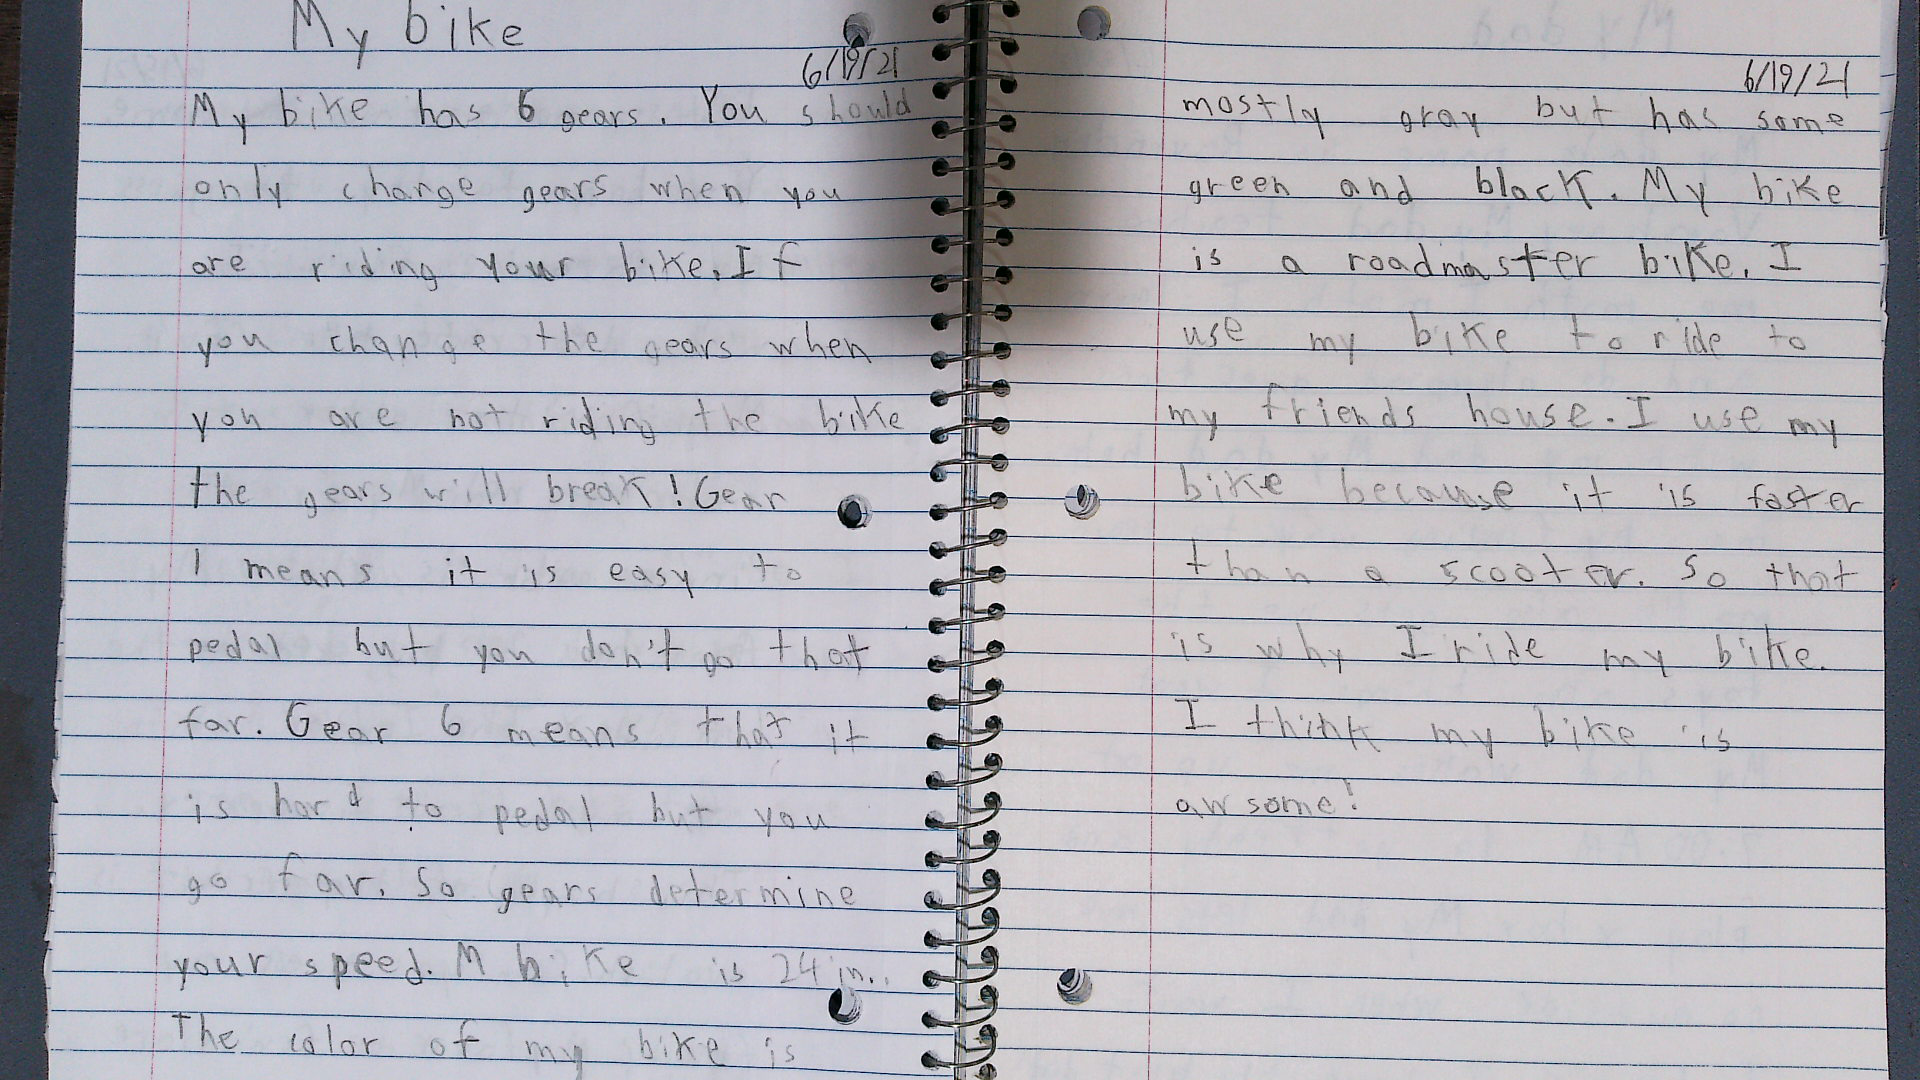 My bike
6/19/21
My bike has 6 gears. You should
only change gears when you
are riding your bike. If
you change the gears when
you are not riding the bike
the gears will break! Gear
1 means it is easy to
pedal but you don't go that
far. Gear 6 means that it
is hard to pedal but you
go far. So gears determine
your speed. M bike is 24 in..
The color of my bike is
6/19/21
mostly gray but has some
green and black. My bike
is a roadmaster bike. I
use my bike to ride to
my friends house. I use my
bike because it is faster
than a scooter. So that
is why I ride my bike.
I think my bike is
awsome!